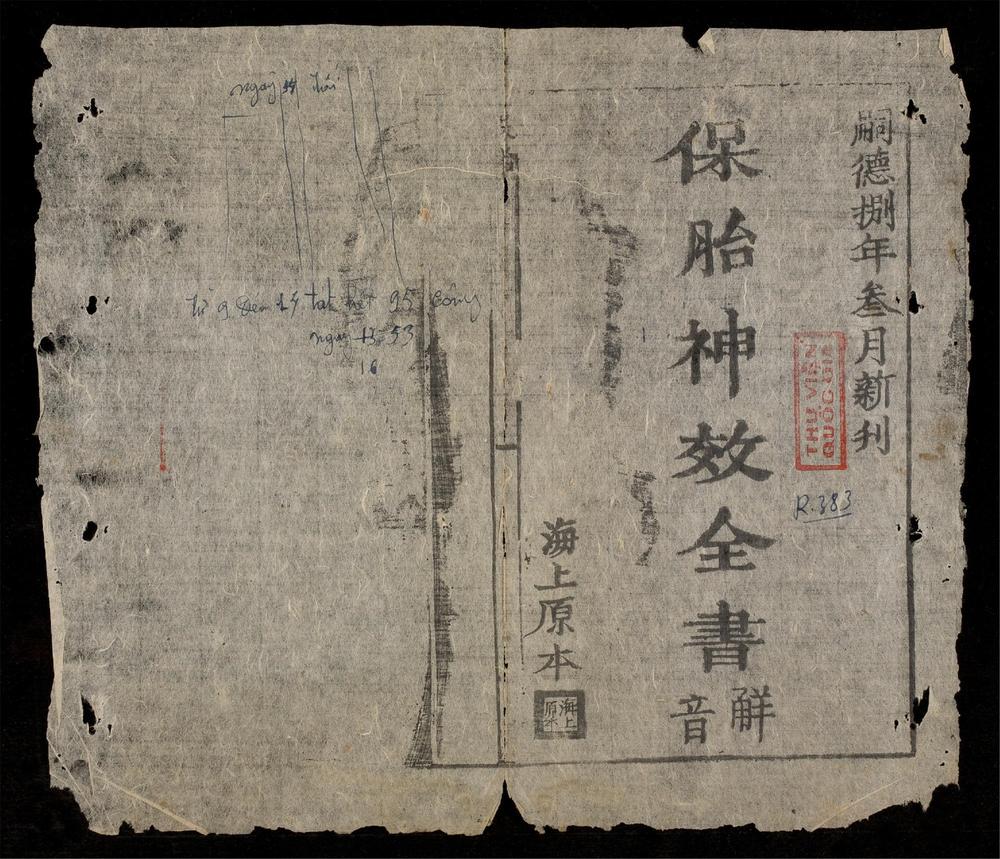 嗣德捌年叁月新刊
保胎神效全書
解音
海上原本
海上原本
THƯ VIỆN
QUỐC GIA
R.383
ngày
từ 9 đến
95 công
ngày 13
53
16